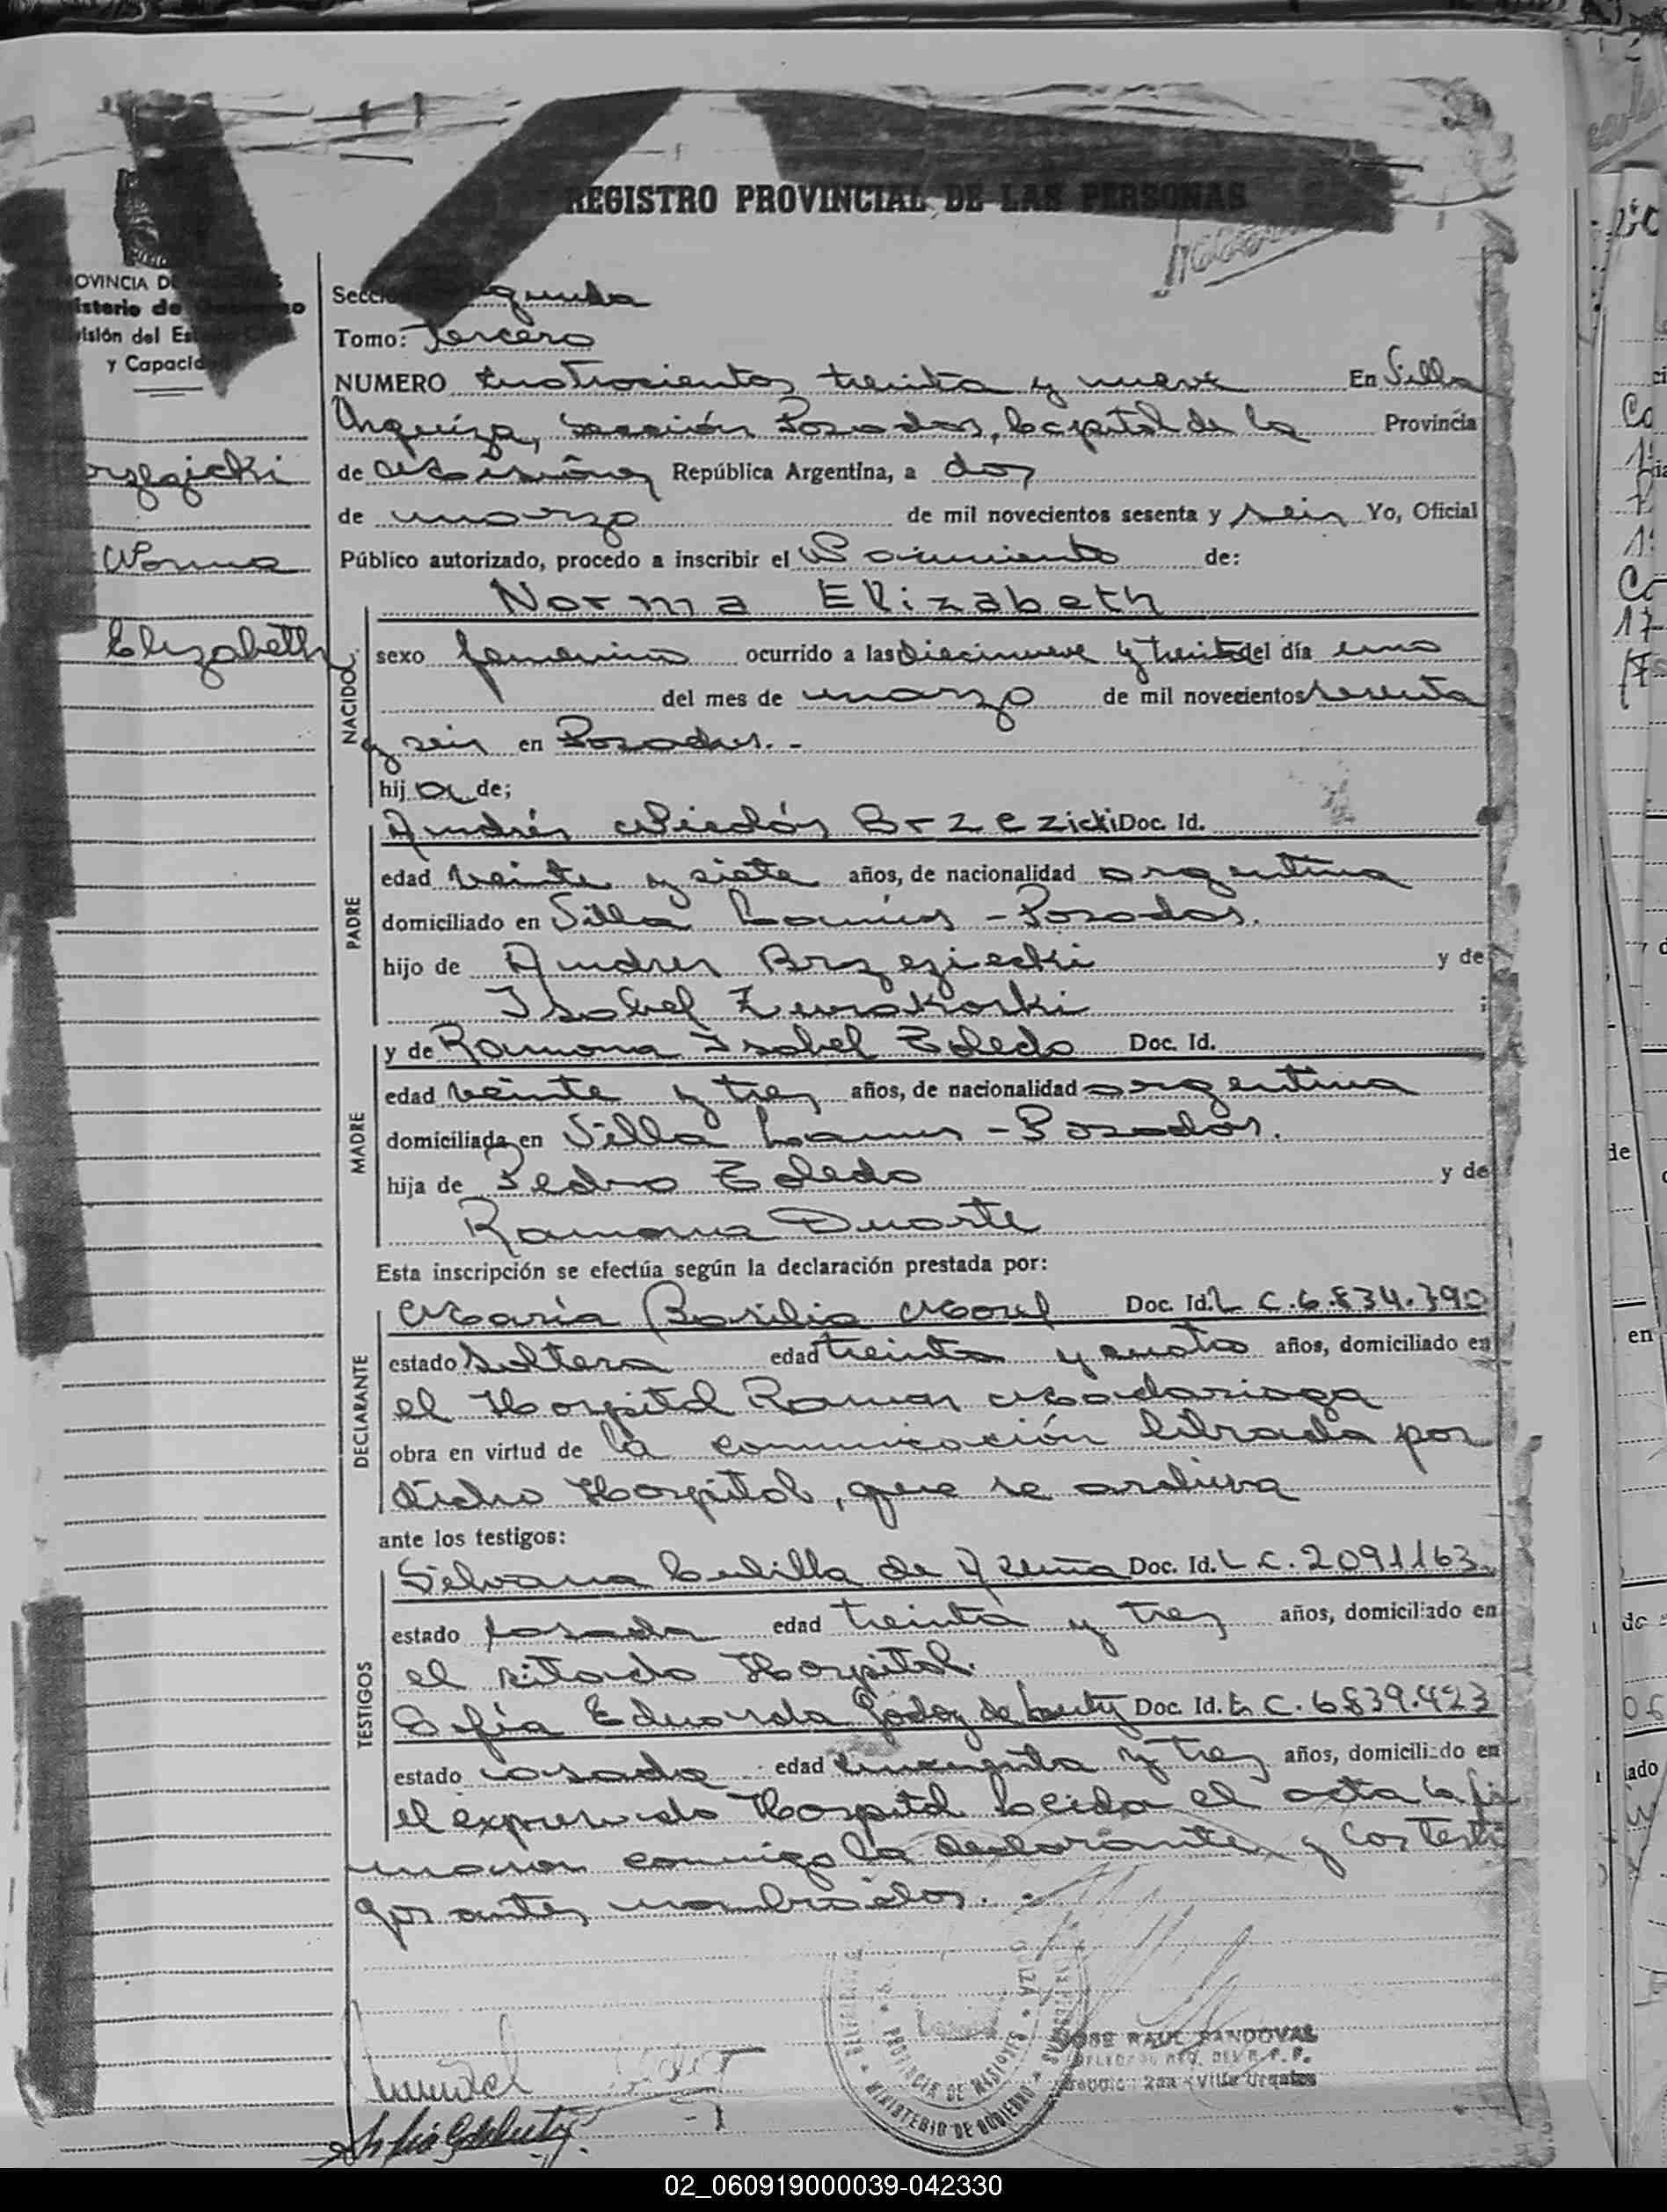 REGISTRO PROVINCIAL DE LAS PERSONAS
OVINCIA DE
isterio de Gobierno
visión del Estado Civil
y Capacidad
rzezicki
Norma
Elizabeth
Sección Segunda
Tomo: Tercero
NUMERO cuatrocientos treinta y nueve En Villa
Urquiza, sección Posadas, Capital de la Provincia
de Misiones República Argentina, a dos
de marzo de mil novecientos sesenta y seis Yo, Oficial
Público autorizado, procedo a inscribir el Nacimiento de:
Norma Elizabeth
NACIDO
sexo femenino ocurrido a las diecinueve y treinta del día uno
del mes de marzo de mil novecientos sesenta
y seis en Posadas.-
hija de;
PADRE
Andrés Nicolás Brzezicki Doc. Id.
edad veinte y siete años, de nacionalidad argentina
domiciliado en Villa Lanús - Posadas.
hijo de Andres Brzeziecki y de
Isabel
MADRE
y de Ramona Isabel Toledo Doc. Id.
edad veinte y tres años, de nacionalidad argentina
domiciliada en Villa Lanus - Posadas.
hija de Pedro Toledo y de
Ramona Duarte
Esta inscripción se efectúa según la declaración prestada por:
DECLARANTE
María Basilia Morel Doc. Id. L C. 6.834.390
estado soltera edad treinta y cuatro años, domiciliado en
el Hospital Ramon Madariaga
obra en virtud de la comunicación librada por
dicho Hospital, que se archiva
ante los testigos:
TESTIGOS
Silvana de Doc. Id. L C. 2091163
estado casada edad treinta y tres años, domiciliado en
el citado Hospital.
Sofía Eduarda Godoy de Doc. Id. L C. 6839.423
estado casada edad cincuenta y tres años, domiciliado en
el expresado Hospital Leida el acta la fir
maron conmigo la declarante y los testi
gos antes nombrados.-
PROVINCIA DE MISIONES
MINISTERIO DE GOBIERNO
JOSE RAUL SANDOVAL
Villa Urquiza
02_060919000039-042330